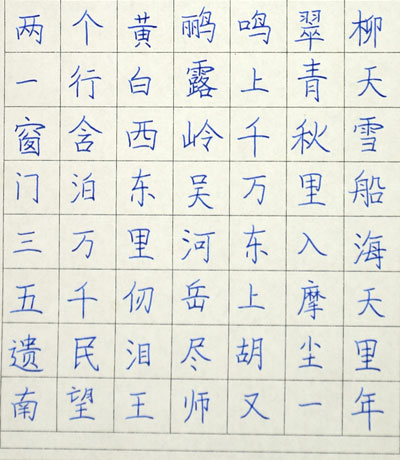 两个黄鹂鸣翠柳
一行白露上青天
窗含西岭千秋雪
门泊东吴万里船
三万里河东入海
五千仞岳上摩天
遗民泪尽胡尘里
南望王师又一年